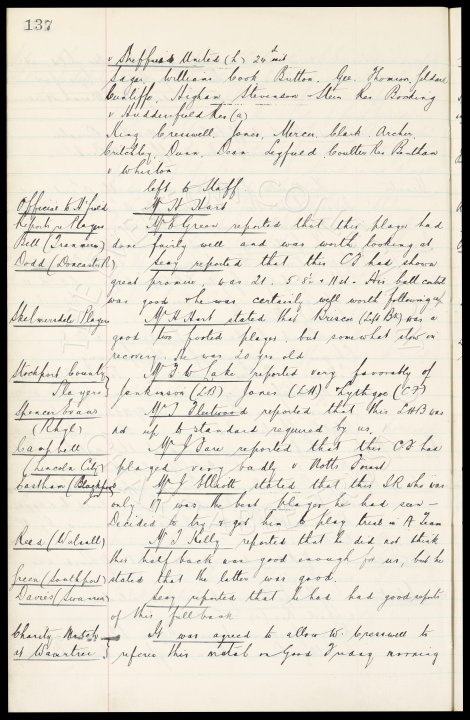 137
v Sheffield United (h) 24th inst
Sagar, Williams Cook Britton, Gee, Thomson, Geldard
Cunliffe, Higham Stevenson & Stein Res Bocking
v Huddersfield Res (a)
King Cresswell, Jones, Mercer, Clark, Archer,
Critchley, Dunn, Dean Leyfield Coulter Res Bentham
v Whiston
left to Staff.
Official to H'field Mr H Hart
Reports re Players Mr E Green reported that this player had
Bell (Tranmere) done fairly well and was worth looking at.
Dodd (Doncaster R) Secy reported that this CF had shown
great promise, was 21. 5' 8½ & 11 st. His ball control
was good & he was certainly well worth following up
Skelmersdale Player Mr H Hart stated that Briscoe (Left Bk) was a
good two footed player, but somewhat slow on
recovery. He was 20 yrs old
Stockport County Mr T W Lake reported very favorably of
Players Jenkinson (LB) Jones (LH) Lythgoe (CF)
Spencer Evans Mr J Fleetwood reported that this LHB was
(Rhyl) not up to standard required by us.
Campbell Mr J Fare reported that this CF had
(Lincoln City) played very badly v Notts Forest
Eastham (Blackpool) Mr J Elliott stated that this IR who was
only 17 was the best player he had seen -
Decided to try & get him to play trial in A Team
Reed (Walsall) Mr J Kelly reported that he did not think
this half back was good enough for us, but he
Green (Southport) stated that the latter was good.
Davies (Swansea) Secy reported that he had had good reports
of this full back
Charity Match It was agreed to allow W. Cresswell to
at Wavertree referee this match on Good Friday morning